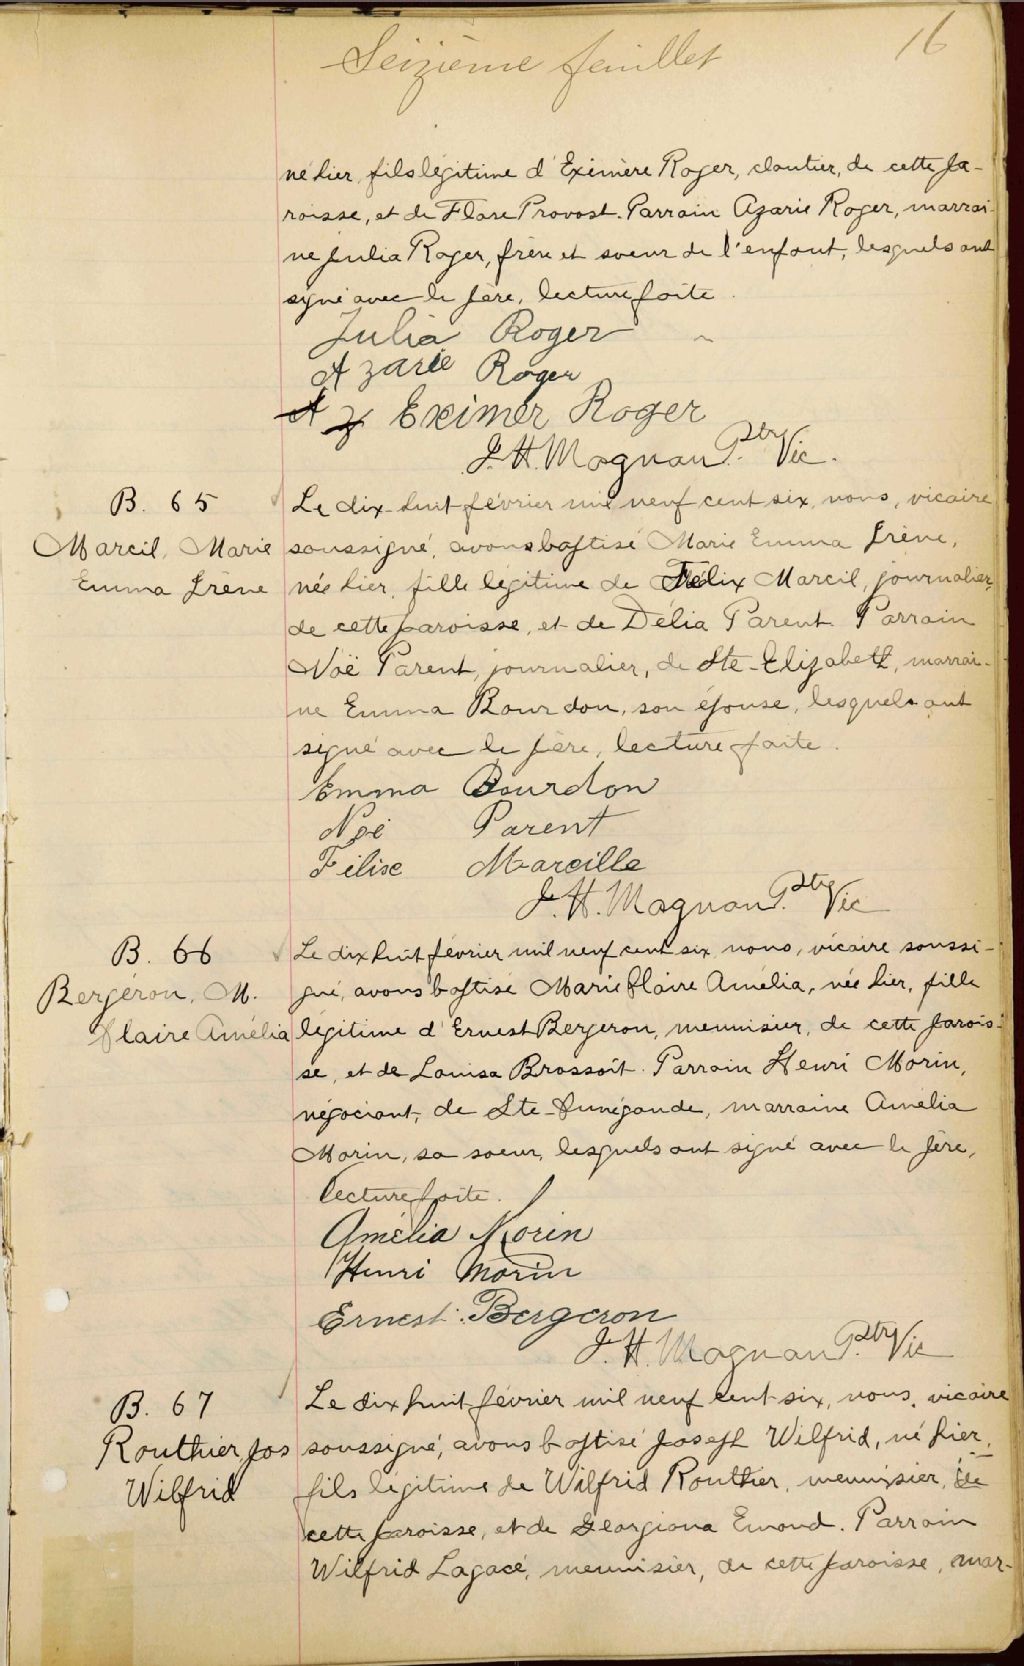 Seizième feuillet
16
né hier, fils légitime d'Eximère Roger, cloutier, de cette pa-
roisse, et de Flore Provost. Parrain Azarie Roger, marrai-
ne Julia Roger, frère et soeur de l'enfant, lesquels ont
signé avec le père, lecture faite.
Julia Roger
Azarie Roger
Eximer Roger
J. H. Magnan Ptre Vic.
B. 65
Marcil, Marie
Emma Irène
Le dix-huit février mil neuf cent six, nous, vicaire
soussigné, avons baptisé Marie Emma Irène,
née hier, fille légitime de Félix Marcil, journalier,
de cette paroisse, et de Délia Parent. Parrain
Noë Parent, journalier, de Ste-Elizabeth, marrai-
ne Emma Bourdon, son épouse, lesquels ont
signé avec le père, lecture faite.
Emma Bourdon
Noé Parent
Félixe Marcille
J. H. Magnan Ptre Vic
B. 66
Bergeron, M.
Claire Amélia
Le dix huit février mil neuf cent six, nous, vicaire soussi-
gné, avons baptisé Marie Claire Amélia, née hier, fille
légitime d'Ernest Bergeron, meunisier, de cette parois-
se, et de Louisa Brossoit. Parrain Henri Morin,
négociant, de Ste-Cunégonde, marraine Amélia
Morin, sa soeur, lesquels ont signé avec le père,
lecture faite.
Amélia Morin
Henri Morin
Ernest Bergeron
J. H. Magnan Ptre Vic
B. 67
Routhier, Jos
Wilfrid
Le dix huit février mil neuf cent six, nous, vicaire
soussigné, avons baptisé Joseph Wilfrid, né hier,
fils légitime de Wilfrid Routhier, meunisier, de
cette paroisse, et de Georgiana Emond. Parrain
Wilfrid Lagacé, meunisier, de cette paroisse, mar-